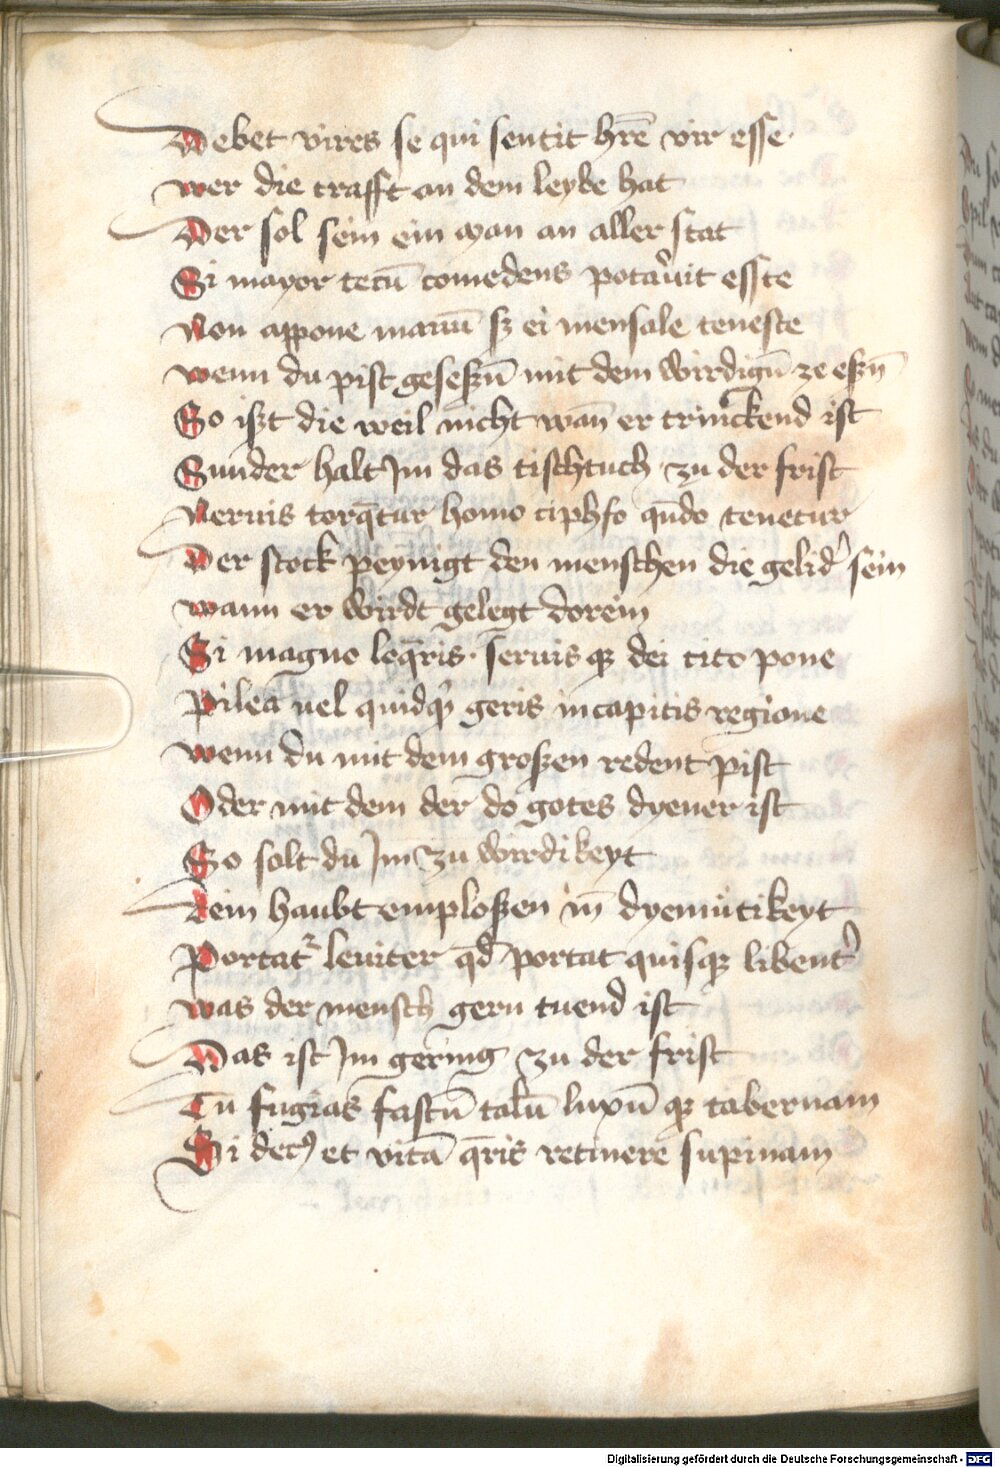 Debet vires se qui sentit hr̄e vir esse·
wer die crafft an dem leybe hat
Der sol sein ein man an aller stat
Si mayor tecū comedens potauit esste
Non appone manū sꝫ ei mensale teneste
wenn du pist geseßñ mit dem wirdigñ ze eßñ
So ißt die weil nicht wañ er trinckend ist
Sunder halt Im das tischtuch zu der frist
Neruis torq̄tur homo ciphso qn̄do tenetur
Der stock peynigt den menschen die gelid' sein
wann er wirdt gelegt dorein
Si magno leq̄ris· seruis qꝫ dei cito pone
Pileā uel quidq̄ geris in capitis regione
wenn du mit dem großen redent pist
Oder mit dem der do gotes dyener ist
So solt du Im zu wirdikeyt
Dein haubt emploßen in̄ dyemütikeyt
Portat᷑ leuiter qd̄ portat quisqꝫ libent'
was der mensch gern tuend ist
Das ist Im gering zu der frist
Tu fugias fastū talū luxū qꝫ tabernam
Si decꝰ et vitā q̄ris retinere supinam
Digitalisierung gefördert durch die Deutsche Forschungsgemeinschaft - DFG